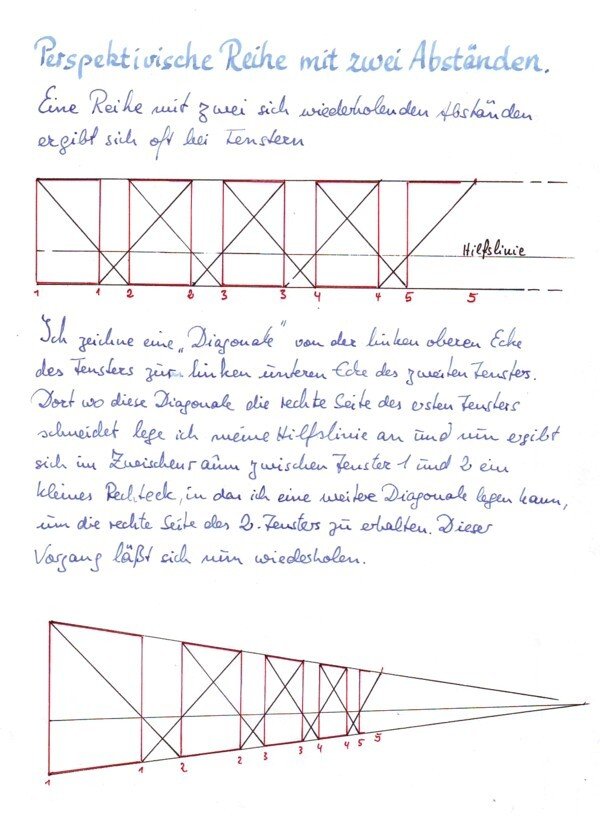 Perspektivische Reihe mit zwei Abständen.
Eine Reihe mit zwei sich wiederholenden Abständen
ergibt sich oft bei Fenstern
Hilfslinie
1 1 2 2 3 3 4 4 5 5
Ich zeichne eine „Diagonale" von der linken oberen Ecke
des Fensters zur linken unteren Ecke des zweiten Fensters.
Dort wo diese Diagonale die rechte Seite des ersten Fensters
schneidet lege ich meine Hilfslinie an und nun ergibt
sich im Zwischenraum zwischen Fenster 1 und 2 ein
kleines Rechteck, in das ich eine weitere Diagonale legen kann,
um die rechte Seite des 2. Fensters zu erhalten. Dieser
Vorgang läßt sich nun wiederholen.
1 1 2 2 3 3 4 4 5 5